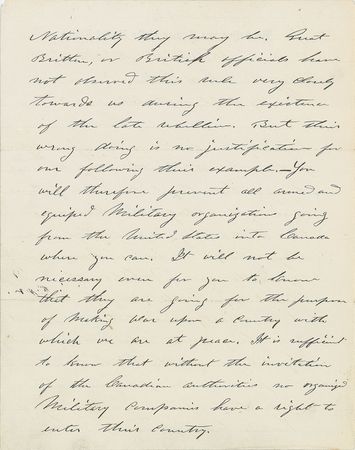 Nationality they may be. Great
Britten, or British officials have
not observed this rule very closely
towards us during the existence
of the late rebellion. But their
wrong doing is no justification for
our following their example.—You
will therefore prevent all armed and
equiped Military organization going
from the United States into Canada
where you can. It will not be
necessary even for you to know
that they are going for the purpose
of making war upon a country with
which we are at peace. It is sufficient
to know that without the invitation
of the Canadian authorities no organized
Military companies have a right to
enter their country.